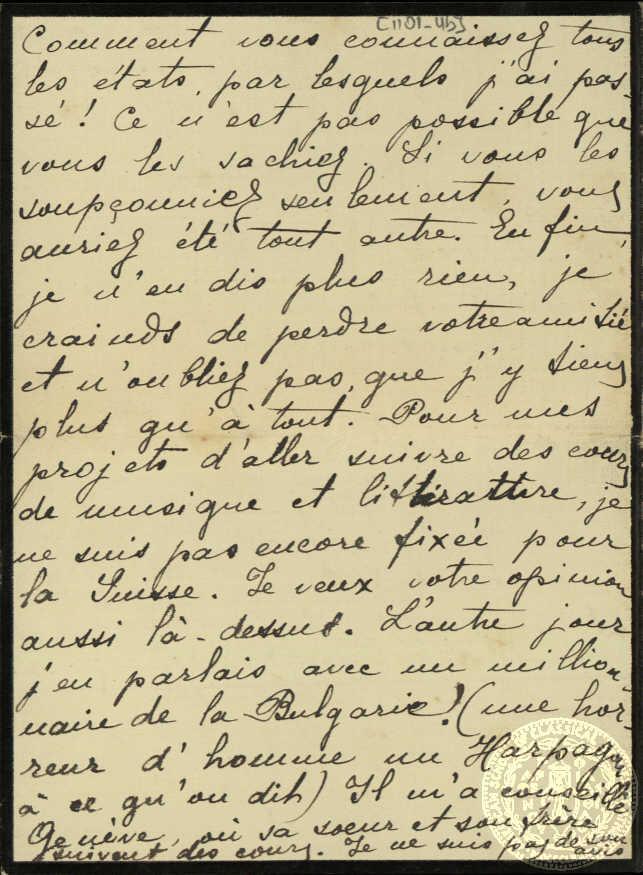 [1101-45]
Comment vous connaissez tous
les états, par lesquels j'ai pas-
sé! Ce n'est pas possible que
vous les sachiez. Si vous les
soupçonniez seulement, vous
auriez été tout autre. Enfin,
je n'en dis plus rien, je
crainds de perdre votre amitié
et n'oubliez pas, que j'y tiens
plus qu'à tout. Pour mes
projets d'aller suivre des cours
de musique et littérature, je
ne suis pas encore fixée pour
la Suisse. Je veux votre opinion
aussi là-dessus. L'autre jour
j'en parlais avec un million-
naire de la Bulgarie! (une hor-
reur d'homme un Harpagon
à ce qu'on dit) Il m'a conseillé
Genève, où sa soeur et son frère
suivent des cours. Je ne suis pas de son
avis